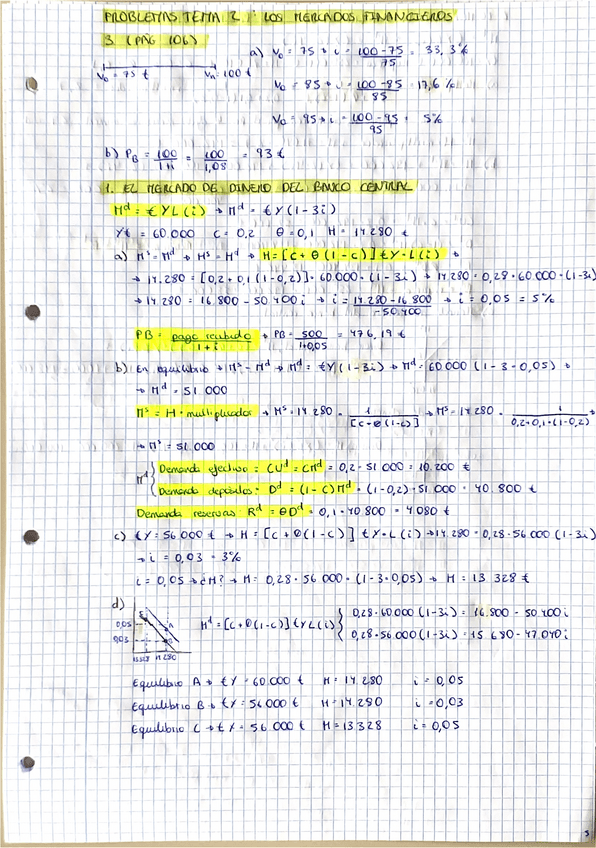 PROBLEMAS TEMA 2 : LOS MERCADOS FINANCIEROS
3 (PÁG 106)
V₀ = 75 € Vₙ = 100 €
a) V₀ = 75 → i = (100-75)/75 = 33,3%
V₀ = 85 → i = (100-85)/85 = 17,6 %
V₀ = 95 → i = (100-95)/95 = 5%
b) P_B = 100/(1+i) = 100/1,05 = 93 €
1. EL MERCADO DE DINERO DEL BANCO CENTRAL
Mᵈ = €YL(i) → Mᵈ = €Y(1-3i)
Y€ = 60.000 C = 0,2 θ = 0,1 H = 14280 €
a) Mˢ = Mᵈ → Hˢ = Hᵈ → H = [C + θ(1-C)] €Y·L(i) →
→ 14.280 = [0,2+0,1(1-0,2)]·60.000·(1-3i) → 14.280 = 0,28·60.000·(1-3i)
→ 14280 = 16.800 - 50 400i → i = (14.280-16.800)/(-50.400) → i = 0,05 = 5%
PB = pago recibido/(1+i) → PB = 500/(1+0,05) = 476,19 €
b) En equilibrio → Mˢ = Mᵈ → Mᵈ = €Y(1-3i) → Mᵈ = 60.000 (1-3·0,05) →
→ Mᵈ = 51.000
Mˢ = H · multiplicador → Mˢ = 14 280 · 1/[C+θ(1-C)] → Mˢ = 14 280 · 1/(0,2+0,1·(1-0,2))
→ Mˢ = 51.000
Mᵈ { Demanda efectivo = CUᵈ = CMᵈ = 0,2 · 51 000 = 10.200 €
Demanda depósitos: Dᵈ = (1-C)Mᵈ = (1-0,2)·51.000 = 40.800 €
Demanda reservas: Rᵈ = θDᵈ = 0,1 · 40 800 = 4.080 €
c) €Y = 56.000 € → H = [C + θ(1-C)] €Y·L(i) → 14.280 = 0,28·56.000 (1-3i)
→ i = 0,03 = 3%
i = 0,05 → ¿H? → H = 0,28 · 56 000 · (1-3·0,05) → H = 13 328 €
d)
0,05 0,03 13328 14280 C A B
Hᵈ = [C+θ(1-C)] €YL(i) { 0,28·60.000(1-3i) = 16.800 - 50 400i
0,28·56.000(1-3i) = 15 680 - 47.040i
Equilibrio A → €Y = 60.000 € H = 14 280 i = 0,05
Equilibrio B → €Y = 56.000 € H = 14.280 i = 0,03
Equilibrio C → €Y = 56.000 € H = 13328 i = 0,05